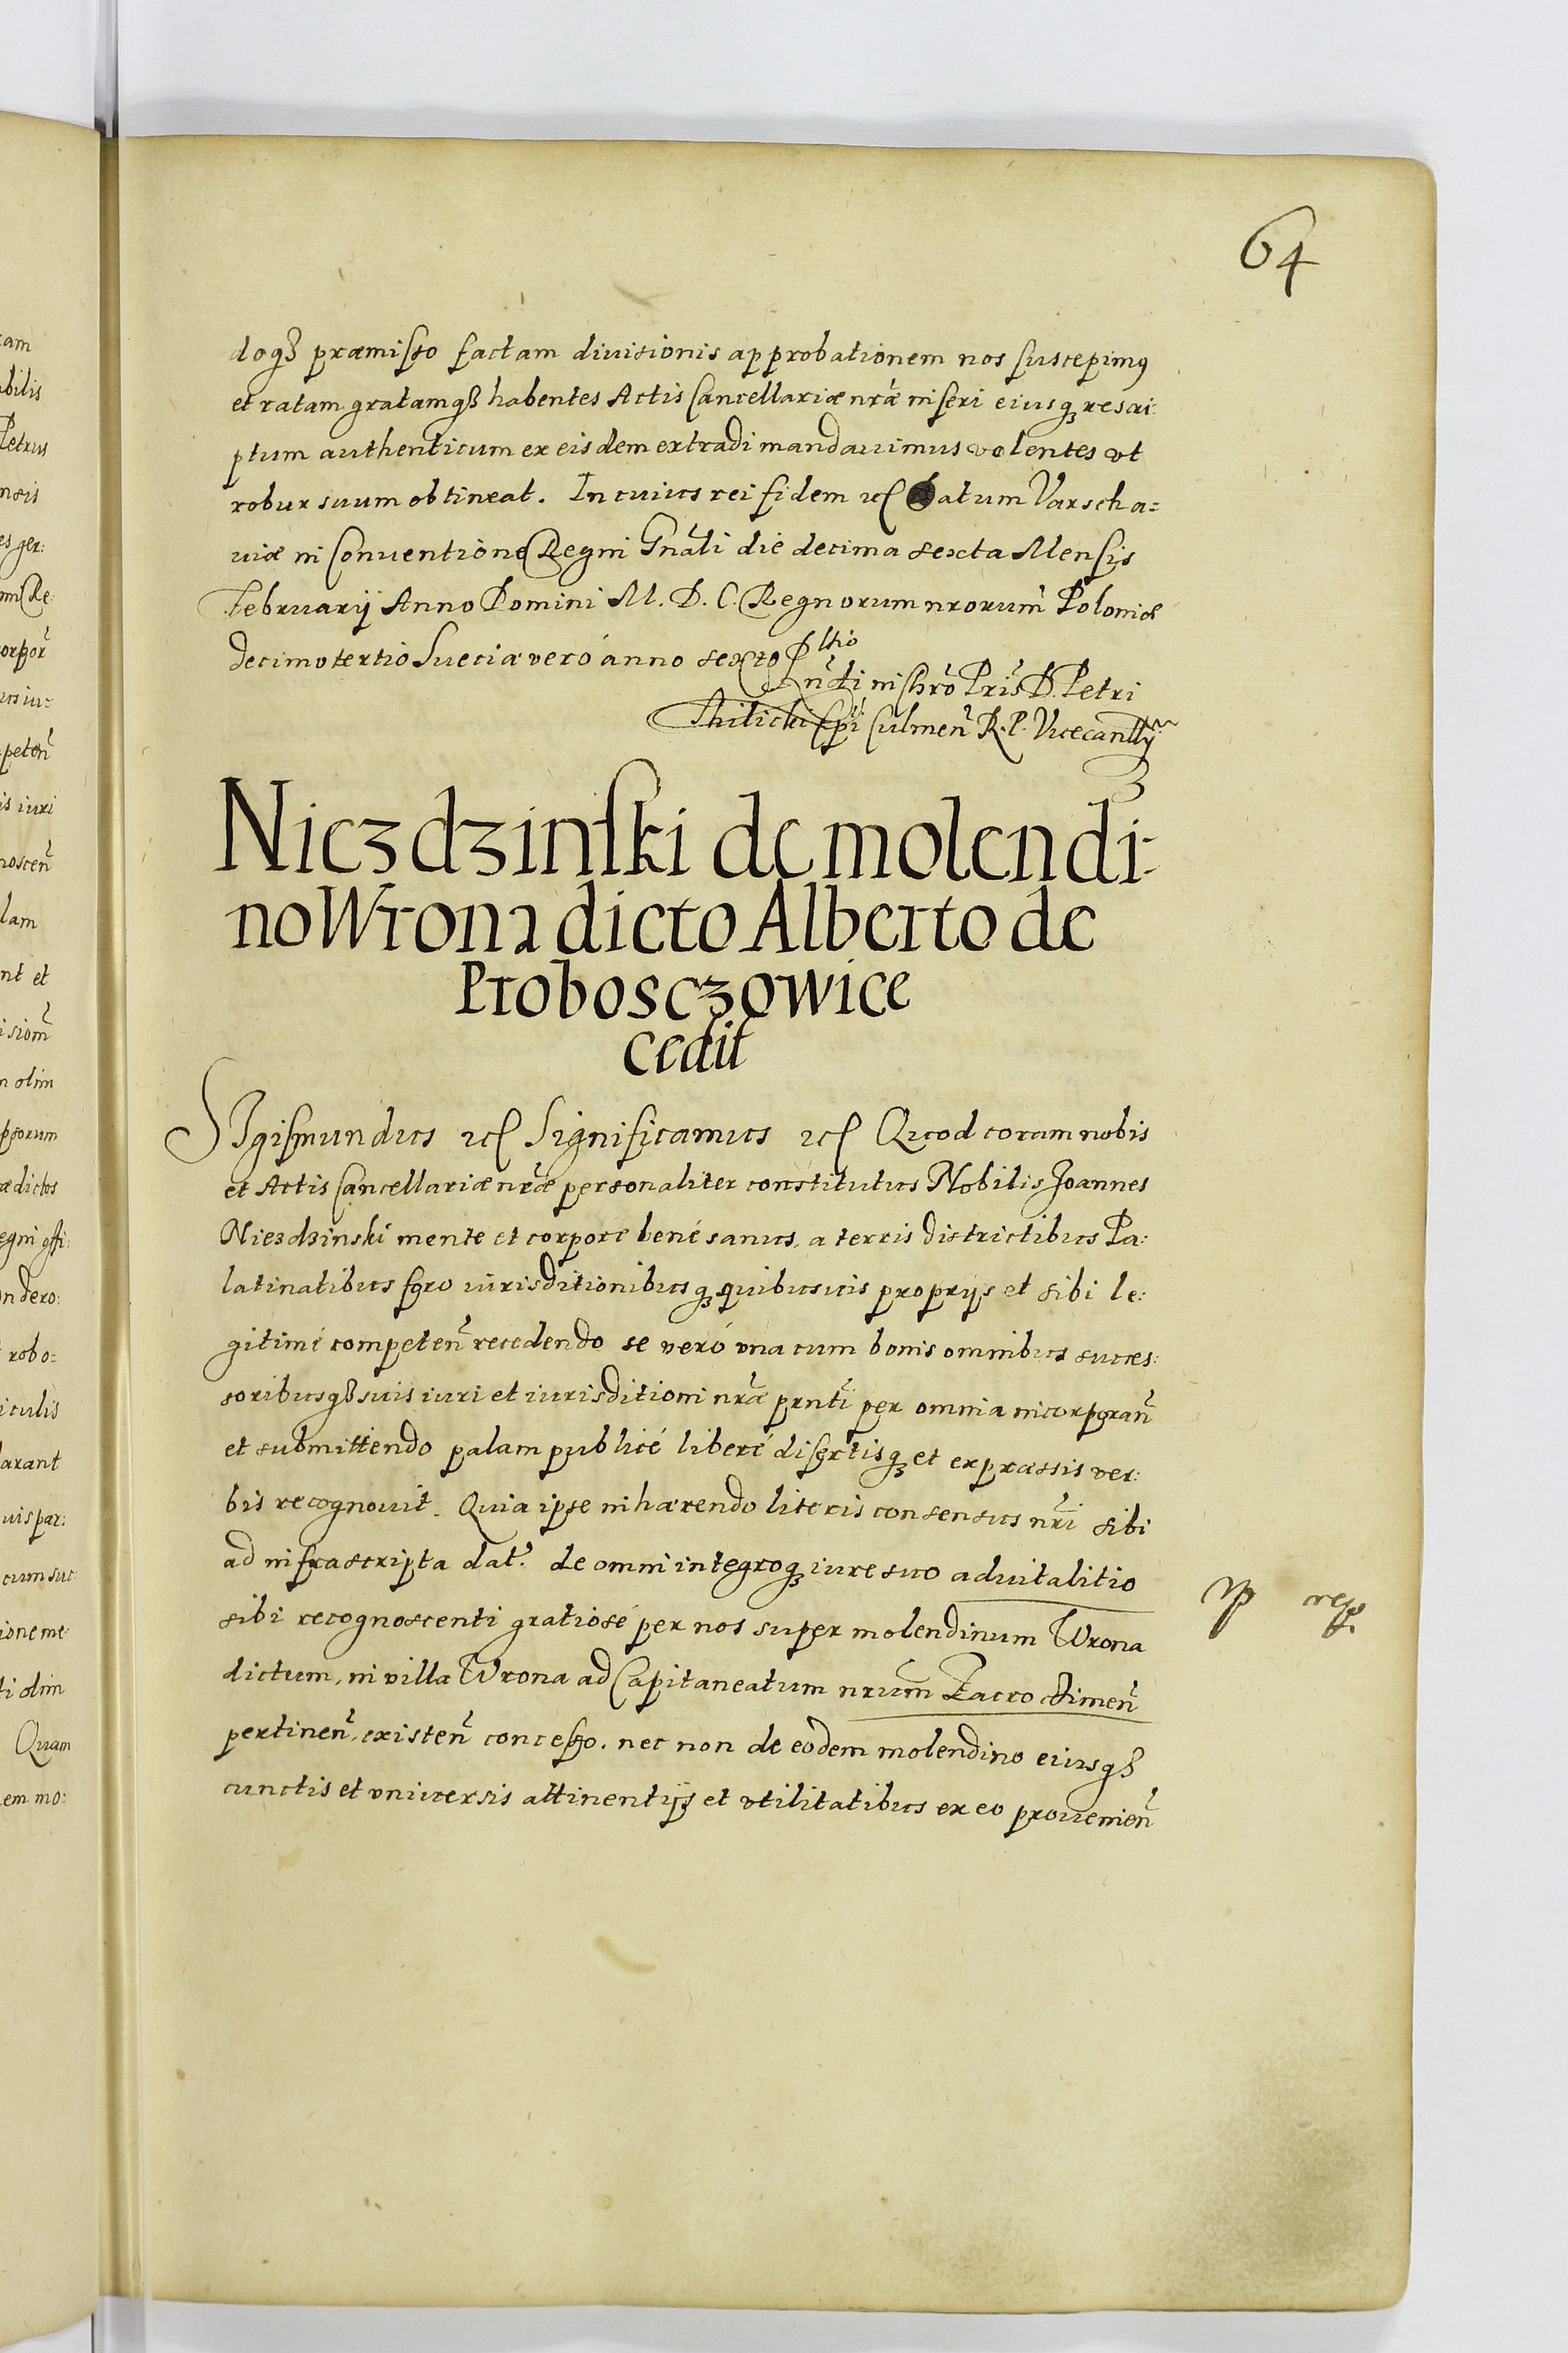 64
doqȝ præmisso factam diuisionis approbationem nos suscepimꝰ
et ratam gratamqȝ habentes Actis Cancellariæ nr̃æ inseri eiusqȝ rescri:
ptum authenticum ex eisdem extradi mandauimus volentes vt
robur suum obtineat. In cuius rei fidem etc Datum Varscha=
uiæ in Conuentione Regni Gn̄ali die decima sexta Mensis
Februarij Anno Domini M. D. C. Regnorum nrorum̃ Poloniæ
decimotertio Sueciæ veró anno sexto
in Chrõ Pris̃ D. Petri
Thilicki Epi Culmeñ R. P. Vicecancellrij
Niezdzinski de molendi-
no Wrona dicto Alberto de
Probosczowice
cedit
SIgismundus etc Significamus etc Quod coram nobis
et Actis Cancellariæ nr̃æ personaliter constitutus Nobilis Joannes
Niezdzinski mente et corpore bené sanus, a terris districtibus Pa:
latinatibus foro iurisditionibusqȝ quibusuis proprijs et sibi le:
gitimé competeñ recedendo se veró vna cum bonis omnibus succes:
soribusqȝ suis iuri et iurisditioni nr̃æ prnti̇̃ per omnia incorporañ
et submittendo palam publicé liberé disertisqȝ et expræssis ver:
bis recognouit. Quia ipse inhærendo literis consensus nri̇̃ sibi
ad infrascripta dat̃. de omni integroqȝ iure suo aduitalitio
sibi recognoscenti gratiosé per nos super molendinum Wrona
dictum, in villa Wrona ad Capitaneatum nrum̃ Zacroctimeñ
pertineñ, existeñ concesso. nec non de eodem molendino eiusqȝ
cunctis et vniuersis attinentijs et vtilitatibus ex eo prouenieñ